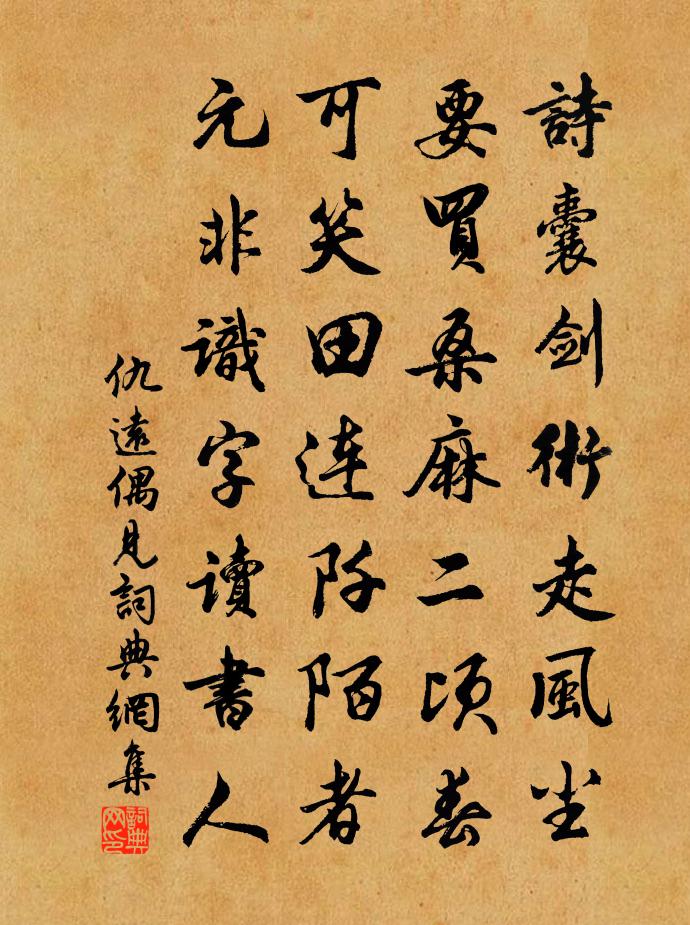 詩囊劍術走風尘
要買桑麻二頃春
可笑田連阡陌者
元非識字讀書人
仇遠偶見詞典網集
詞典网印